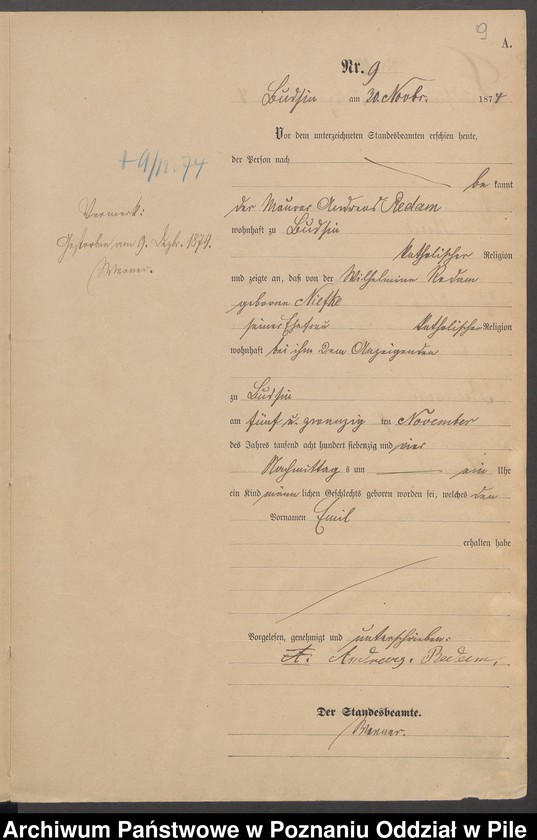 9
A.
Nr. 9
Budsin am 30. Novbr. 1874
Vor dem unterzeichneten Standesbeamten erschien heute,
der Person nach
be kannt
der Maurer Andreas Redam
wohnhaft zu Budsin
katholischer Religion
und zeigte an, daß von der Wilhelmine Redam
geborne Nietzke
seiner Ehefrau katholischer Religion
wohnhaft bei ihm dem Anzeigenden
zu Budsin
am fünf u. zwanzig ten November
des Jahres tausend acht hundert siebenzig und vier
Nachmittag s um ein Uhr
ein Kind männ lichen Geschlechts geboren worden sei, welches den
Vornamen Emil
erhalten habe
Vorgelesen, genehmigt und unterschrieben:
Andreas Redam
Der Standesbeamte.
Werner.
+ 9/12. 74
Vermerk:
Gestorben am 9. Dezbr. 1874.
Werner.
Archiwum Państwowe w Poznaniu Oddział w Pile